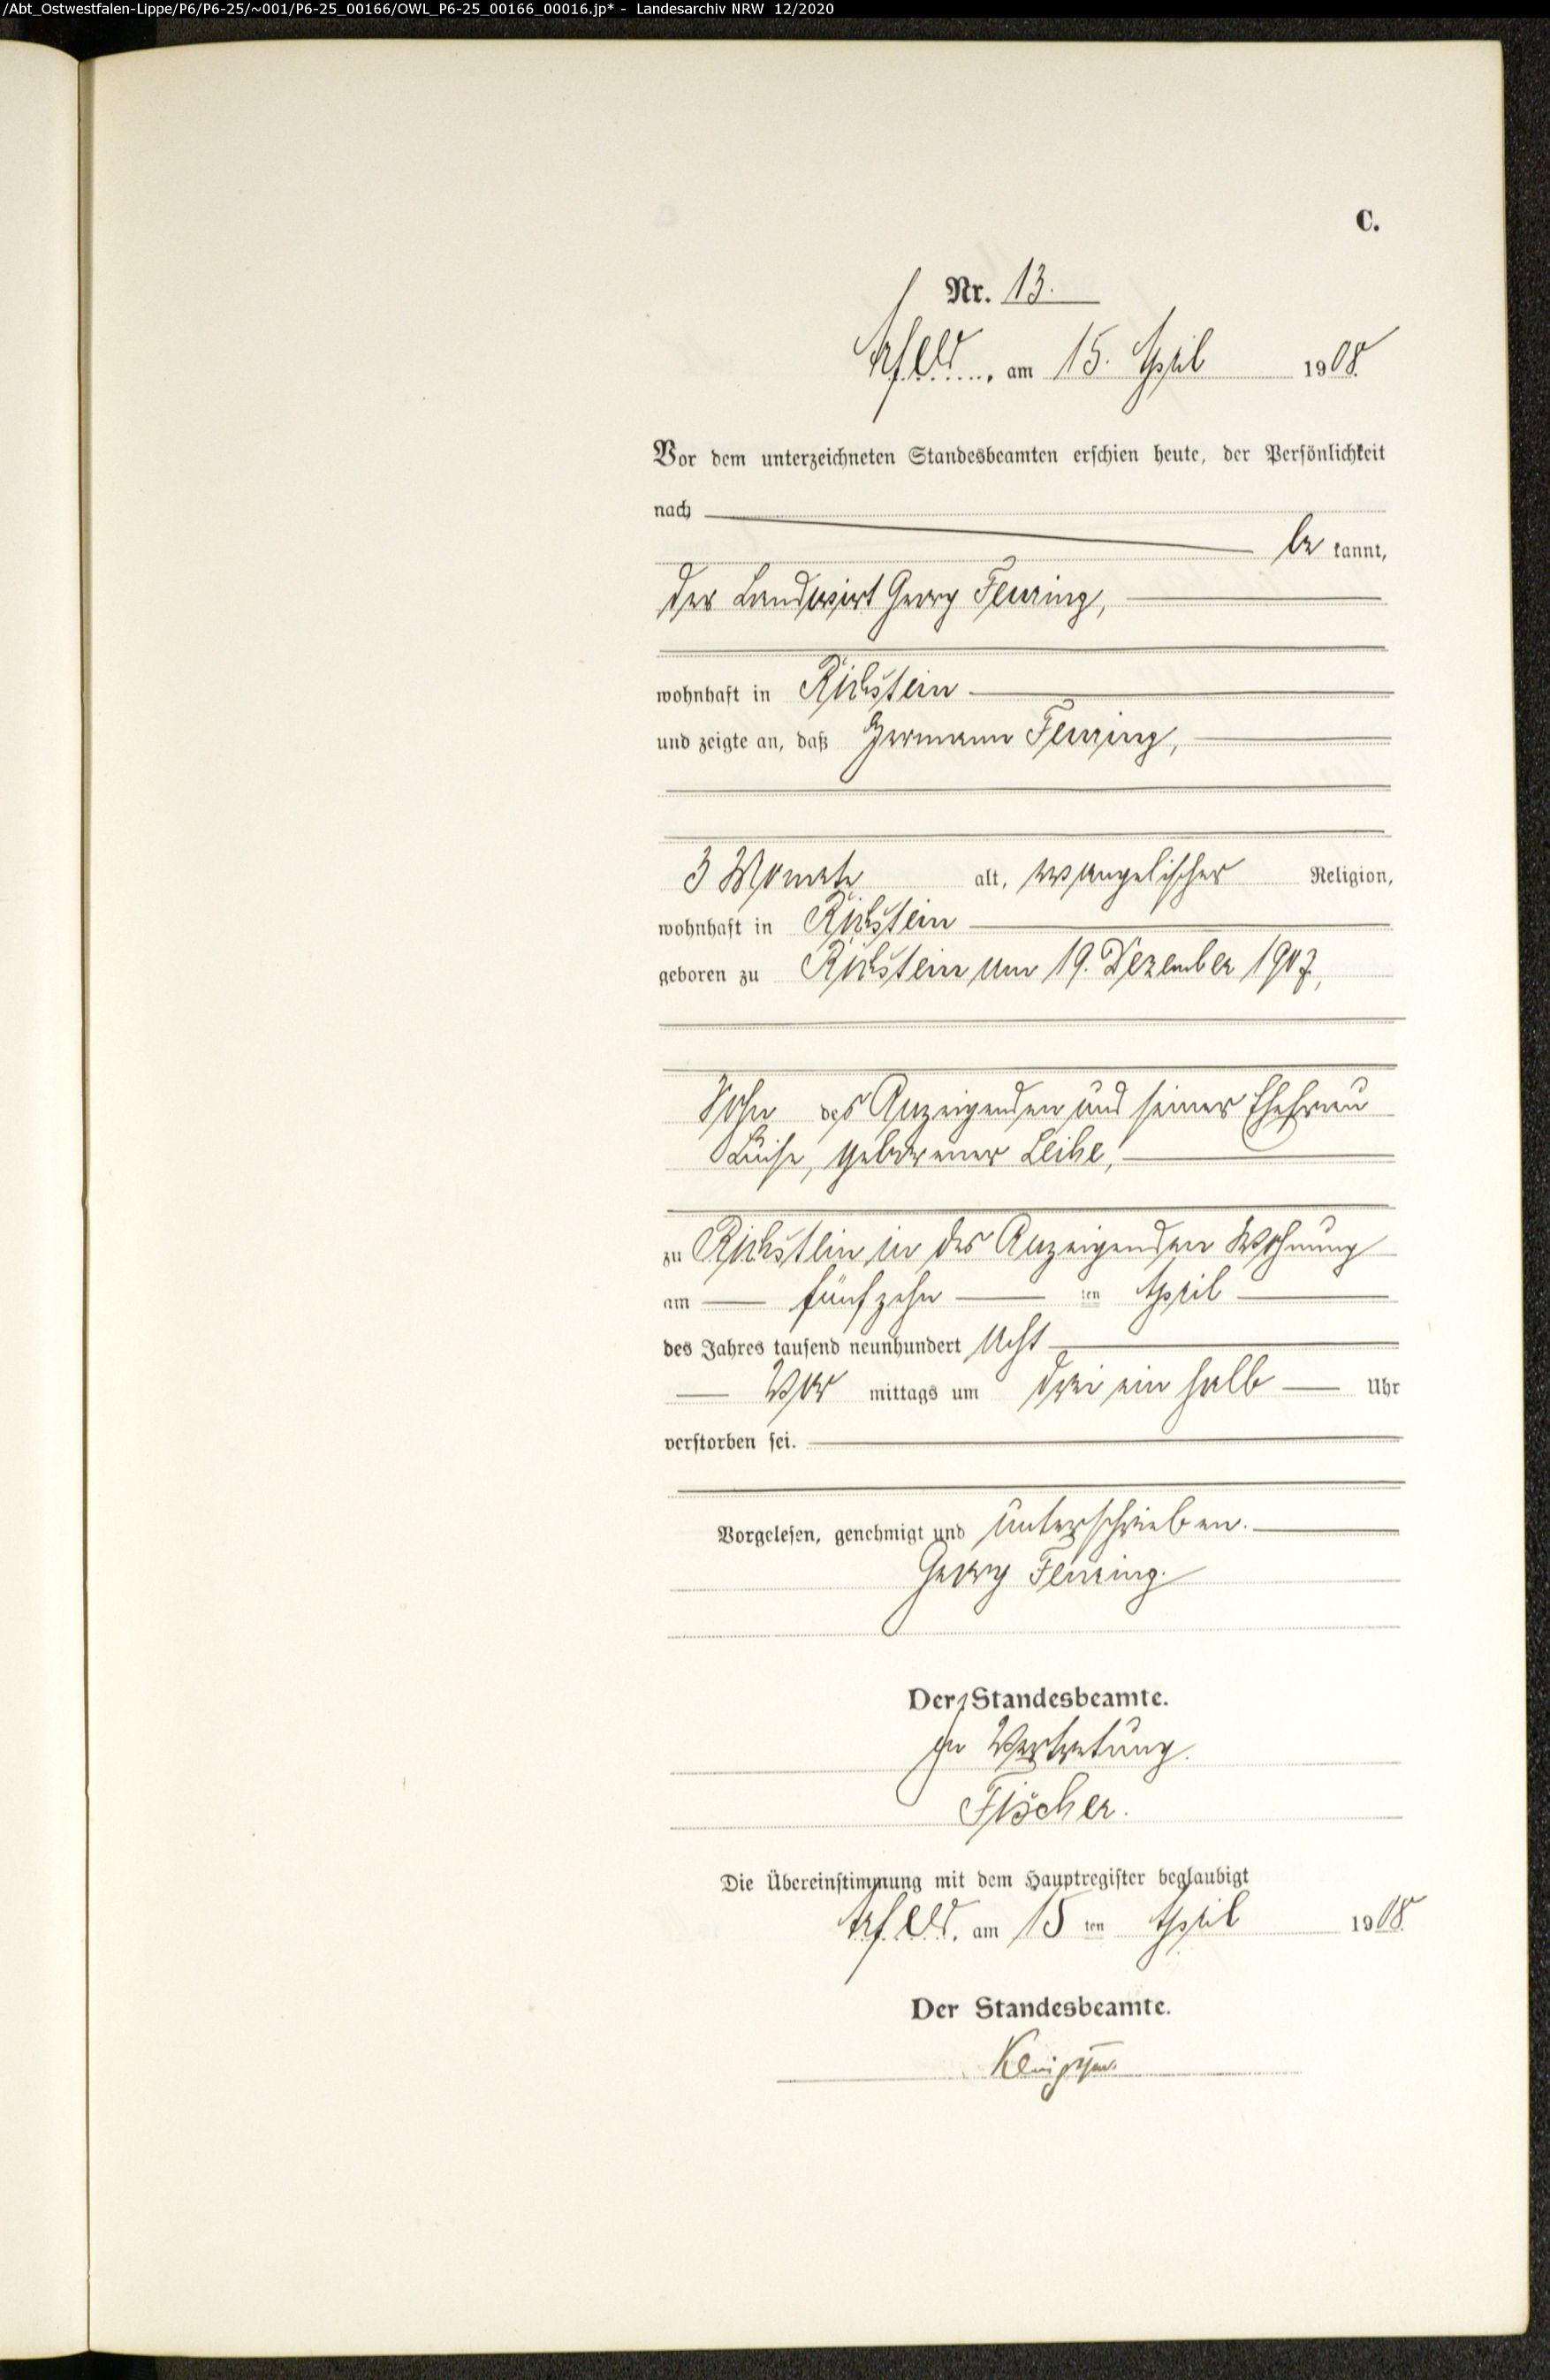 /Abt_Ostwestfalen-Lippe/P6/P6-25/~001/P6-25_00166/OWL_P6-25_00166_00016.jp* - Landesarchiv NRW 12/2020
C.
Nr. 13.
Arfeld, am 15. April 1908
Vor dem unterzeichneten Standesbeamten erschien heute, der Persönlichkeit
nach
be kannt,
der Landwirt Georg Feuring,
wohnhaft in Richstein
und zeigte an, daß Hermann Feuring,
3 Monate alt, evangelischer Religion,
wohnhaft in Richstein
geboren zu Richstein am 19. Dezember 1907,
Sohn des Anzeigenden und seiner Ehefrau
Luise, geborener
zu Richstein in des Anzeigenden Wohnung
am fünfzehn ten April
des Jahres tausend neunhundert acht
Vor mittags um drei ein halb Uhr
verstorben sei.
Vorgelesen, genehmigt und unterschrieben.
Georg Feuring.
Der Standesbeamte.
In Vertretung.
Fischer.
Die Übereinstimmung mit dem Hauptregister beglaubigt
Arfeld, am 15 ten April 1908
Der Standesbeamte.